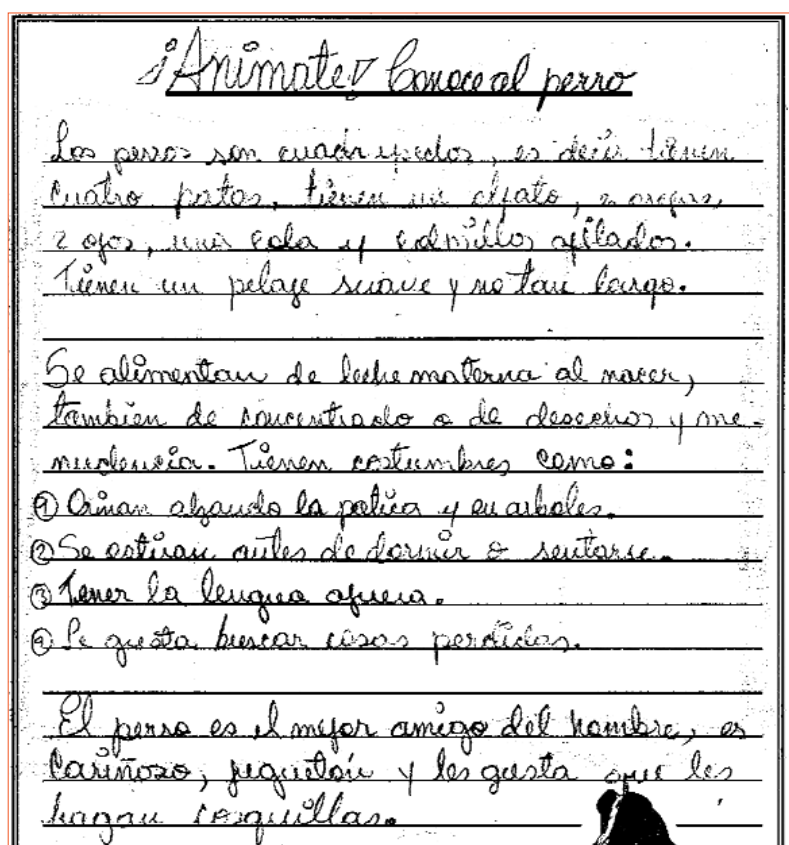 ¡Animate! Conoce al perro
Los perros son cuadrupedos, es decir tienen
cuatro patas, tienen un olfato, 2 orejas,
2 ojos, una cola y colmillos afilados.
Tienen un pelaje suave y no tan largo.
Se alimentan de leche materna al nacer,
tambien de concentrado o de desechos y me-
nudencia. Tienen costumbres como:
① Orinan alzando la patica y en arboles.
② Se estiran antes de dormir o sentarse.
③ Tener la lengua afuera.
④ Le gusta buscar cosas perdidas.
El perro es el mejor amigo del hombre, es
cariñoso, juguetón y les gusta que les
hagan cosquillas.